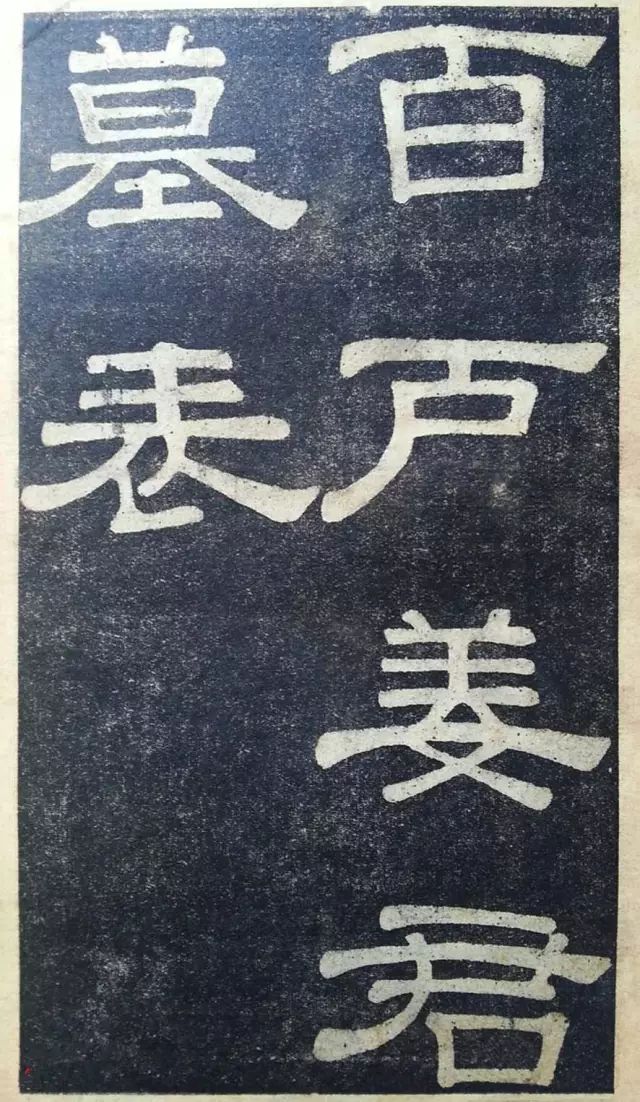 百户姜君
墓表